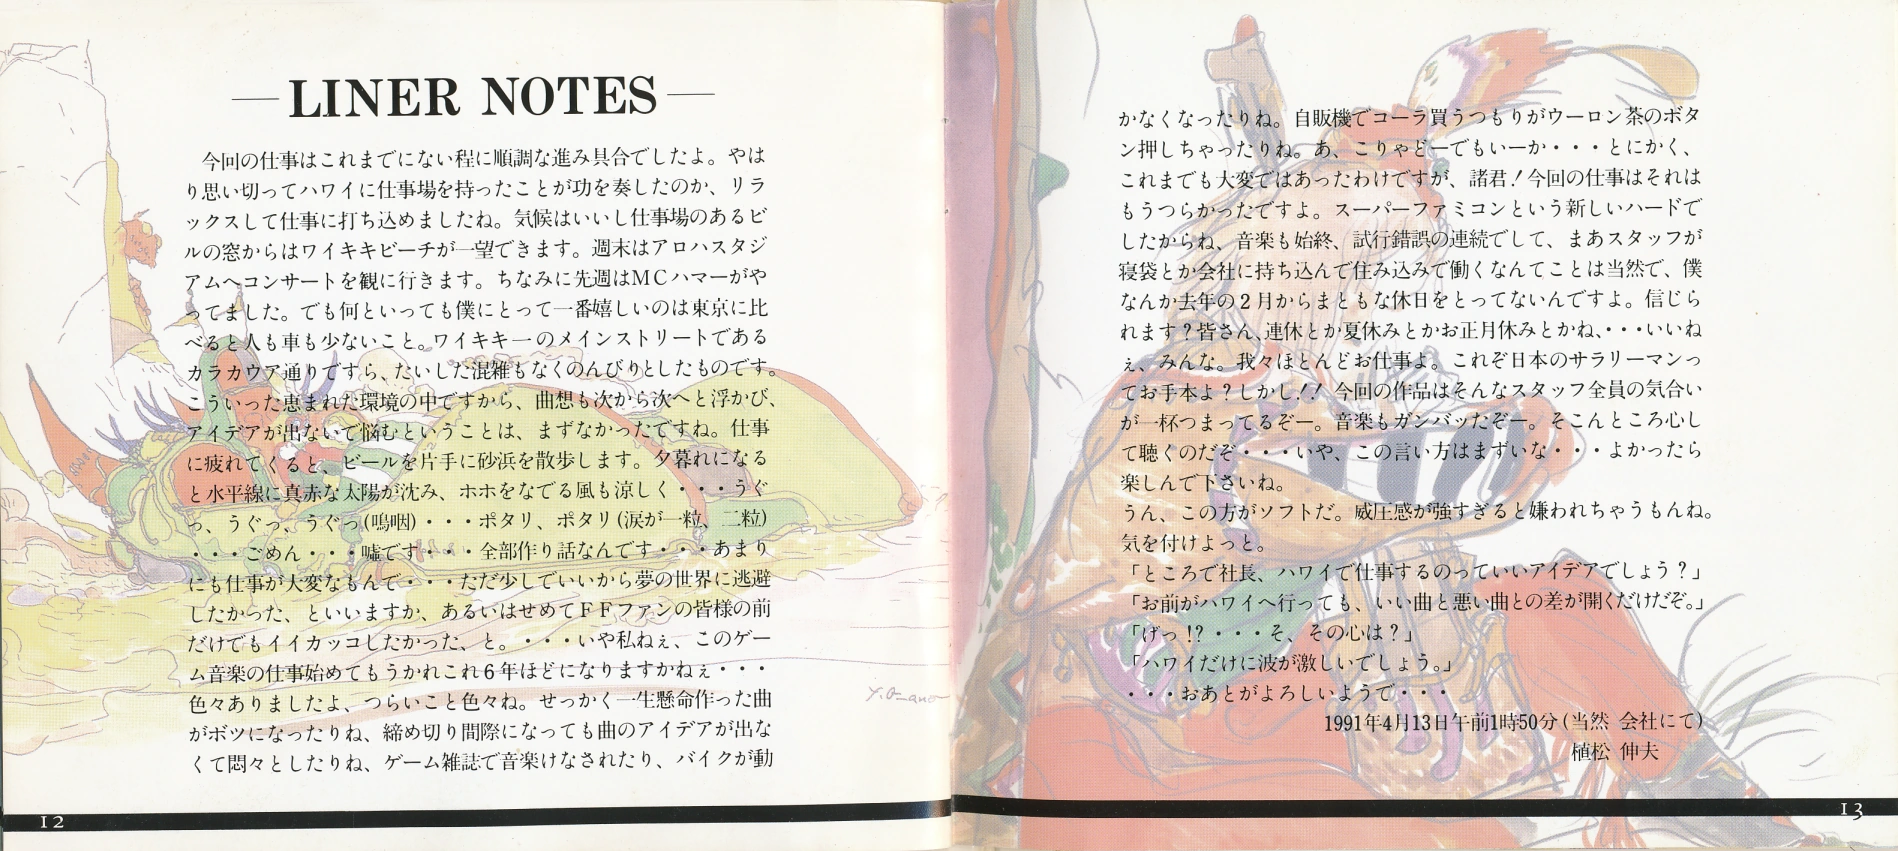 LINER NOTES
今回の仕事はこれまでにない程に順調な進み具合でしたよ。やは
り思い切ってハワイに仕事場を持ったことが功を奏したのか、リラ
ックスして仕事に打ち込めましたね。気候はいいし仕事場のあるビ
ルの窓からはワイキキビーチが一望できます。週末はアロハスタジ
アムへコンサートを観に行きます。ちなみに先週はMCハマーがや
ってました。でも何といっても僕にとって一番嬉しいのは東京に比
べると人も車も少ないこと。ワイキキ一のメインストリートである
カラカウア通りですら、たいした混雑もなくのんびりとしたものです。
こういった恵まれた環境の中ですから、曲想も次から次へと浮かび、
アイデアが出ないで悩むということは、まずなかったですね。仕事
に疲れてくると、ビールを片手に砂浜を散歩します。夕暮れになる
と水平線に真赤な太陽が沈み、ホホをなでる風も涼しく・・・うぐ
っ、うぐっ、うぐっ(嗚咽)・・・ポタリ、ポタリ(涙が一粒、二粒)
・・・ごめん・・・嘘です・・・全部作り話なんです・・・あまり
にも仕事が大変なもんで・・・ただ少しでいいから夢の世界に逃避
したかった、といいますか、あるいはせめてFFファンの皆様の前
だけでもイイカッコしたかった、と。・・・いや私ねぇ、このゲー
ム音楽の仕事始めてもうかれこれ6年ほどになりますかねぇ・・・
色々ありましたよ、つらいこと色々ね。せっかく一生懸命作った曲
がボツになったりね、締め切り間際になっても曲のアイデアが出な
くて悶々としたりね、ゲーム雑誌で音楽けなされたり、バイクが動
12
かなくなったりね。自販機でコーラ買うつもりがウーロン茶のボタ
ン押しちゃったりね。あ、こりゃどーでもいーか・・・とにかく、
これまでも大変ではあったわけですが、諸君!今回の仕事はそれは
もうつらかったですよ。スーパーファミコンという新しいハードで
したからね、音楽も始終、試行錯誤の連続でして、まあスタッフが
寝袋とか会社に持ち込んで住み込みで働くなんてことは当然で、僕
なんか去年の2月からまともな休日をとってないんですよ。信じら
れます?皆さん、連休とか夏休みとかお正月休みとかね、・・・いいね
ぇ、みんな。我々ほとんどお仕事よ。これぞ日本のサラリーマンっ
てお手本よ?しかし!! 今回の作品はそんなスタッフ全員の気合い
が一杯つまってるぞー。音楽もガンバッたぞー。そこんところ心し
て聴くのだぞ・・・いや、この言い方はまずいな・・・よかったら
楽しんで下さいね。
うん、この方がソフトだ。威圧感が強すぎると嫌われちゃうもんね。
気を付けよっと。
「ところで社長、ハワイで仕事するのっていいアイデアでしょう?」
「お前がハワイへ行っても、いい曲と悪い曲との差が開くだけだぞ。」
「げっ!?・・・そ、その心は?」
「ハワイだけに波が激しいでしょう。」
・・・おあとがよろしいようで・・・
1991年4月13日午前1時50分(当然 会社にて)
植松 伸夫
13